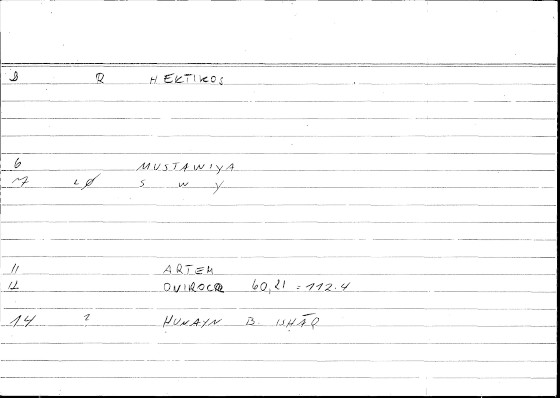 D R HEKTIKOS
6 MUSTAWIYA
7 LØ s w y
11 ARTEM
12 ONIROCR 60,21 = 112.4
14 ? HUNAYN B. ISHĀQ